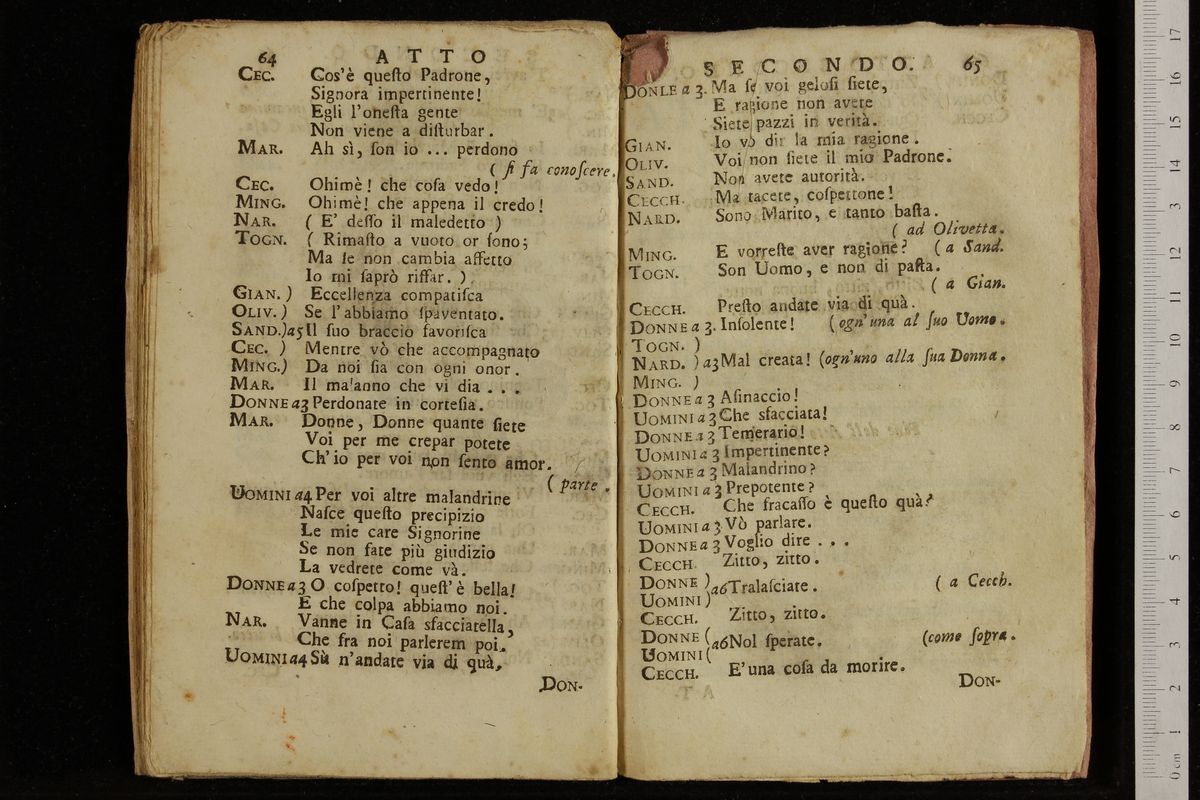 64 ATTO
CEC. Cos'è queſto Padrone,
Signora impertinente!
Egli l'oneſta gente
Non viene a diſturbar.
MAR. Ah sì, ſon io ... perdono
( ſi fa conoſcere.
CEC. Ohimè! che coſa vedo!
MING. Ohimè! che appena il credo!
NAR. ( E' deſſo il maledetto )
TOGN. ( Rimaſto a vuoto or ſono;
Ma ſe non cambia affetto
Io mi ſaprò riffar. )
GIAN. ) Eccellenza compatiſca
OLIV. ) Se l'abbiamo ſpaventato.
SAND.)a5 Il ſuo braccio favoriſca
CEC. ) Mentre vò che accompagnato
MING.) Da noi ſia con ogni onor.
MAR. Il ma'anno che vi dia . . .
DONNE a3 Perdonate in corteſia.
MAR. Donne, Donne quante ſiete
Voi per me crepar potete
Ch'io per voi non ſento amor.
( parte .
UOMINI a4 Per voi altre malandrine
Naſce queſto precipizio
Le mie care Signorine
Se non fate più giudizio
La vedrete come và.
DONNE a3 O coſpetto! queſt'è bella!
E che colpa abbiamo noi.
NAR. Vanne in Caſa sfacciatella,
Che fra noi parlerem poi.
UOMINI a4 Sù n'andate via di quà,
DON-
SECONDO. 65
DONLE a 3. Ma ſe voi geloſi ſiete,
E ragione non avete
Siete pazzi in verità.
GIAN. Io vò dir la mia ragione.
OLIV. Voi non ſiete il mio Padrone.
SAND. Non avete autorità.
CECCH. Ma tacete, coſpettone!
NARD. Sono Marito, e tanto baſta.
( ad Olivetta.
MING. E vorreſte aver ragione? ( a Sand.
TOGN. Son Uomo, e non di paſta.
( a Gian.
CECCH. Preſto andate via di quà.
DONNE a 3. Inſolente! ( ogn'una al ſuo Uomo.
TOGN. )
NARD. )a3 Mal creata! (ogn'uno alla ſua Donna.
MING. )
DONNE a 3 Aſinaccio!
UOMINI a 3 Che sfacciata!
DONNE a 3 Temerario!
UOMINI a 3 Impertinente?
DONNE a 3 Malandrino?
UOMINI a 3 Prepotente?
CECCH. Che fracaſſo è queſto quà?
UOMINI a 3 Vò parlare.
DONNE a 3 Voglio dire . . .
CECCH. Zitto, zitto.
DONNE )a6 Tralaſciate. ( a Cecch.
UOMINI )
CECCH. Zitto, zitto.
DONNE (a6 Nol ſperate. (come ſopra.
UOMINI (
CECCH. E'una coſa da morire.
DON-